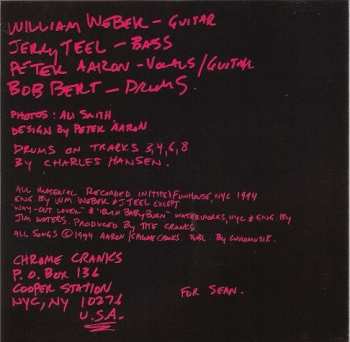 WILLIAM WEBER - GUITAR
JERRY TEEL - BASS
PETER AARON - VOCALS/GUITAR
BOB BERT - DRUMS.
PHOTOS: ALI SMITH
DESIGN BY PETER AARON
DRUMS ON TRACKS 3,4,6,8
BY CHARLES HANSEN.
ALL MATERIAL RECORDED IN (THE) FUNHOUSE, NYC 1994
ENG. BY WM WEBER & J TEEL EXCEPT
"WAY-OUT LOVER" & "BURN BABY BURN" WATERWORKS, NYC & ENG BY
JIM WATERS. PRODUCED BY THE CRANKS.
ALL SONGS © 1994 AARON / CHROME CRANKS. PUBL. BY
CHROME CRANKS
P.O. BOX 136
COOPER STATION
NYC, NY 10276
U.S.A.
FOR SEAN.